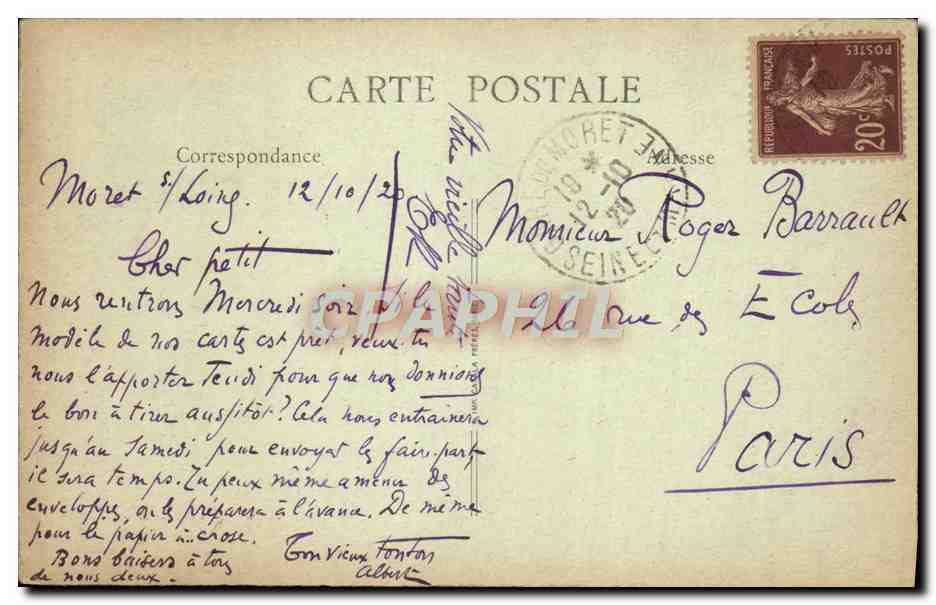 CARTE POSTALE
Correspondance
Adresse
REPUBLIQUE FRANÇAISE
POSTES
20c
MORET
SEINE ET M
10 *
12 - 10
20
CPAPHIL
Moret s/Loing. 12/10/20
Cher petit
Nous rentrons Mercredi soir. Si le
modèle de nos cartes est prêt, veux-tu
nous l'apporter Jeudi pour que nous donnions
le bon à tirer aussitôt? Cela nous entrainera
jusqu'au Samedi pour envoyer les faire-part
il sera temps. Tu peux même amener des
enveloppes, on les préparera à l'avance. De même
pour le papier à ... crose.
Bons baisers à tous
de nous deux.
Ton vieux tonton
Albert
Votre vieille tante
Monsieur Roger Barrault
26 rue des Ecoles
Paris